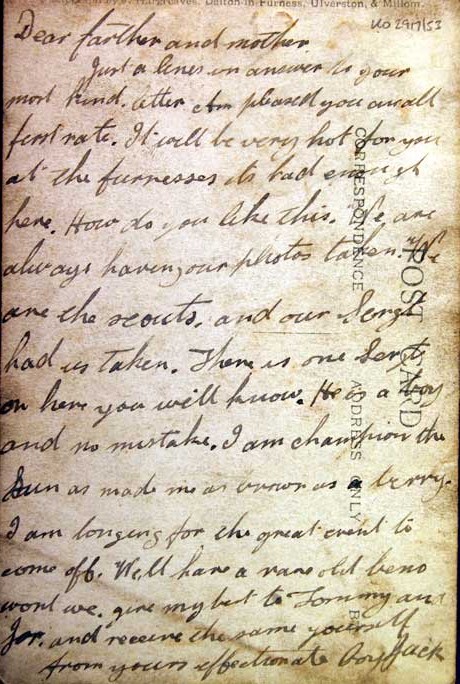 Hargreaves, Dalton-in-Furness, Ulverston, & Millom.
KO 29/7/53
Dear farther and mother
Just a lines in answer to your
most kind. letter Am pleased you are all
first rate. It will be very hot for you
at the furnesses its bad enough
here. How do you like this. We are
always having our photos taken. We
are the scouts. and our Sergt
had us taken. There is one Sergt
on here you will know. He is a boy
and no mistake. I am champion the
Sun as made me as brown as a berry.
I am longing for the great event to
come off. Well have a rare old beno
wont we. give my best to Tommy and
Jos. and receive the same yourself
from yours effectionate boy Jack
POST CARD
CORRESPONDENCE
ADDRESS ONLY